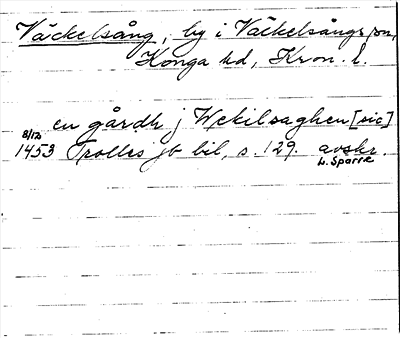 Väckelsång, by i Väckelsångs sn,
Konga hd, Kron. l.
en gårdh j Wekilsaghen [sic]
8/12 1453 Trolles jb bil, s. 129. avskr.
L. Sparre